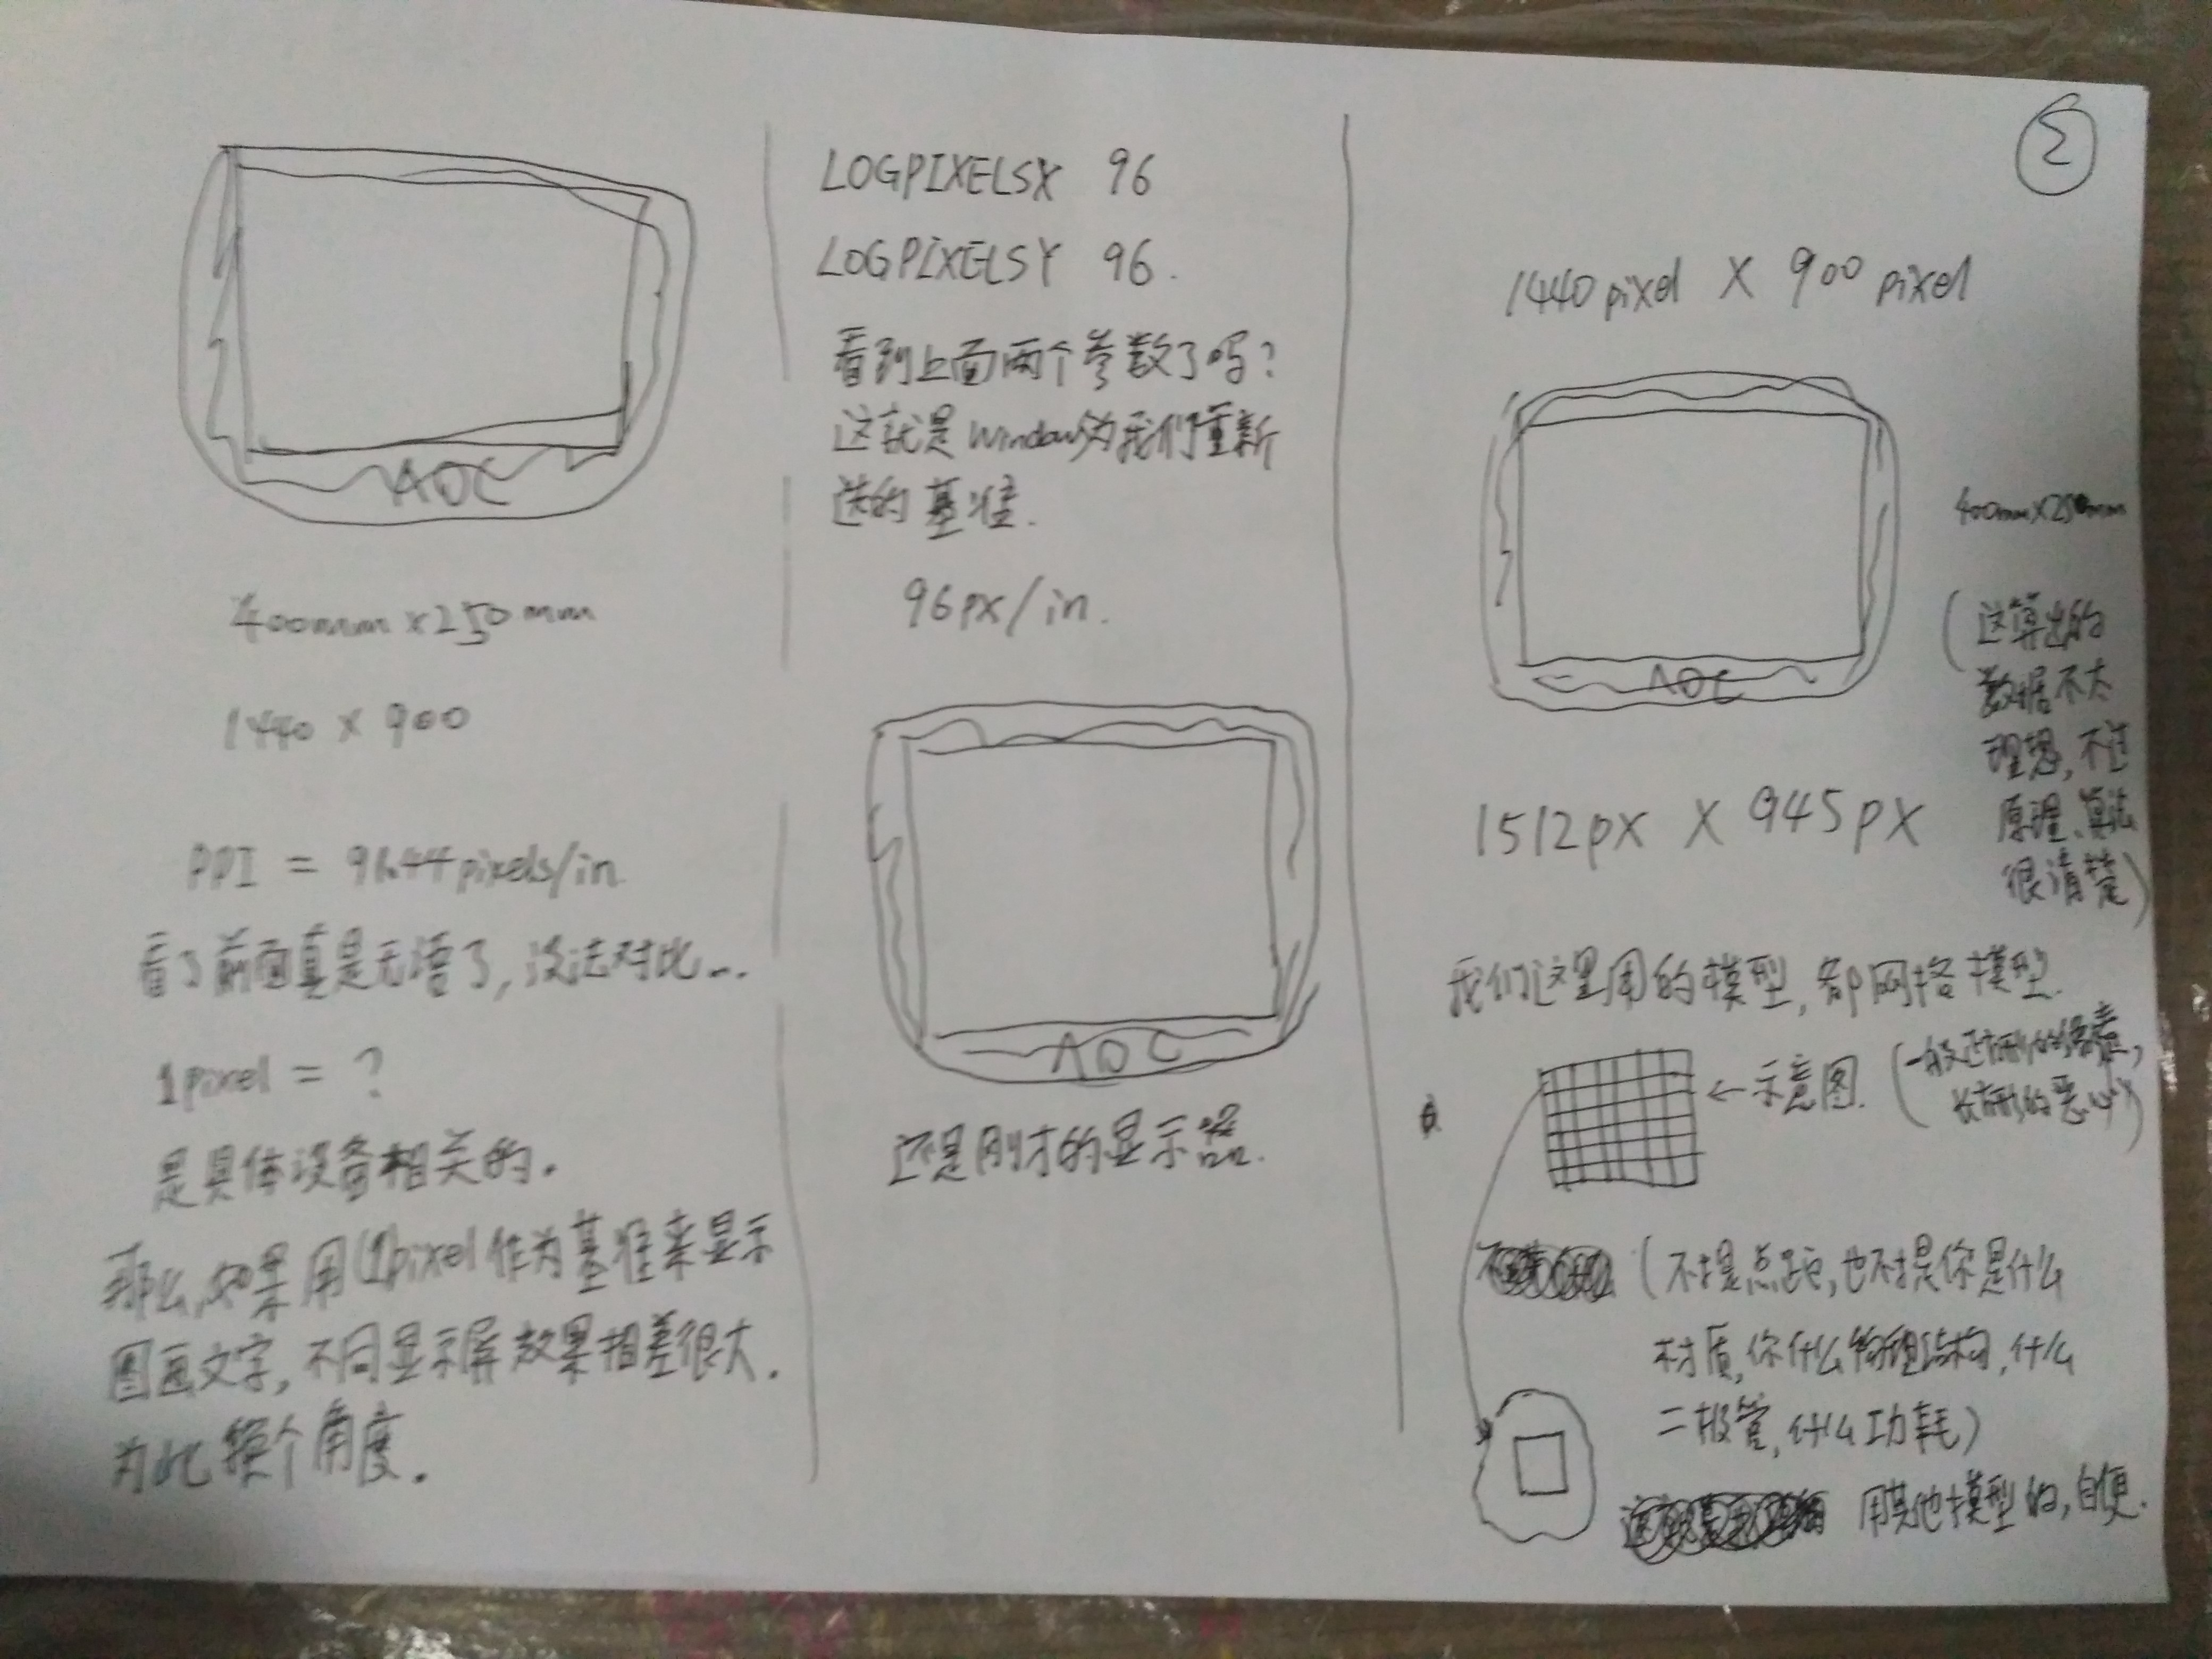 ②
AOC
400mm×250mm
1440×900
PPI = 91.44pixels/in
看了前面真是无语了,没法对比...
1pixel = ?
是具体设备相关的.
那么,如果用(1)pixel作为基准来显示
图画文字,不同显示屏效果相差很大.
为此换个角度.
LOGPIXELSX 96
LOGPIXELSY 96.
看到上面两个参数了吗?
这就是Windows为我们重新
选的基准.
96px/in.
AOC
还是刚才的显示器.
1440pixel X 900pixel
AOC
400mm×250mm
(这算出的
数据不太
理想,不过
原理、算法
很清楚)
1512px X 945px
我们这里用的模型,都网格模型.
←示意图.(一般正方形的像素,
长方形的恶心)
(不提点距,也不提你是什么
材质,你什么物理结构,什么
二极管,什么功耗)
用其他模型的,自便.